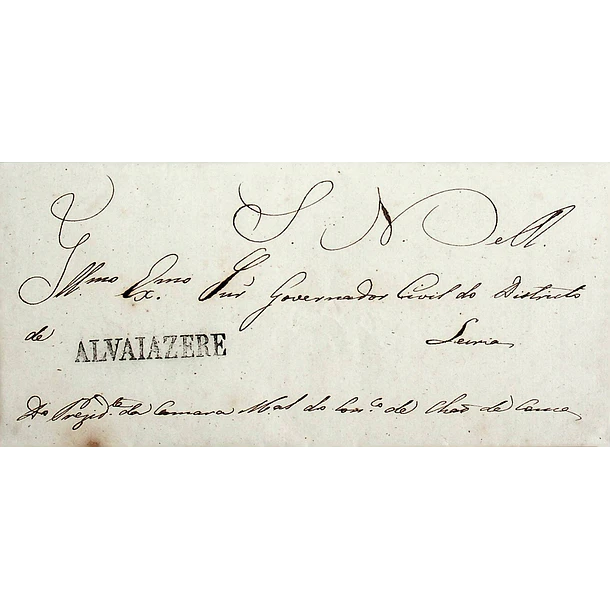 S. N. R.
Illmo Exmo Snr Governador Civil do Districto
de Leiria
ALVAIAZERE
Do Presid.te da Camara Mal do Con.co de Chão de Couce